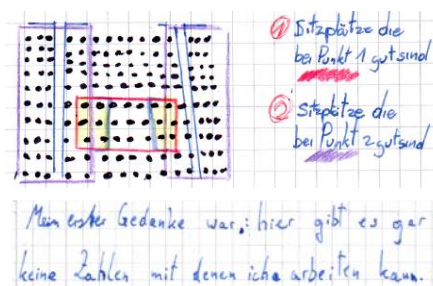 ① Sitzplätze die
bei Punkt 1 gut sind
② Sitzplätze die
bei Punkt 2 gut sind
Mein erster Gedanke war,: hier gibt es gar
keine Zahlen mit denen icha arbeiten kann.